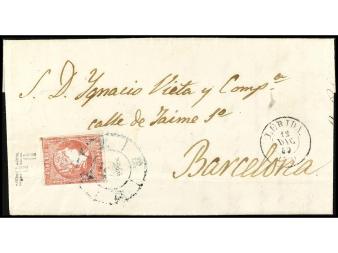 S. D. Ygnacio Vieta y Comp.ª
calle de Jaime 1º
Barcelona
LERIDA
12
DIC